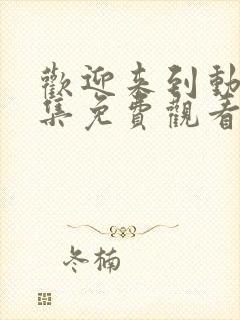 歡迎来到動
集免費觀看
冬楠